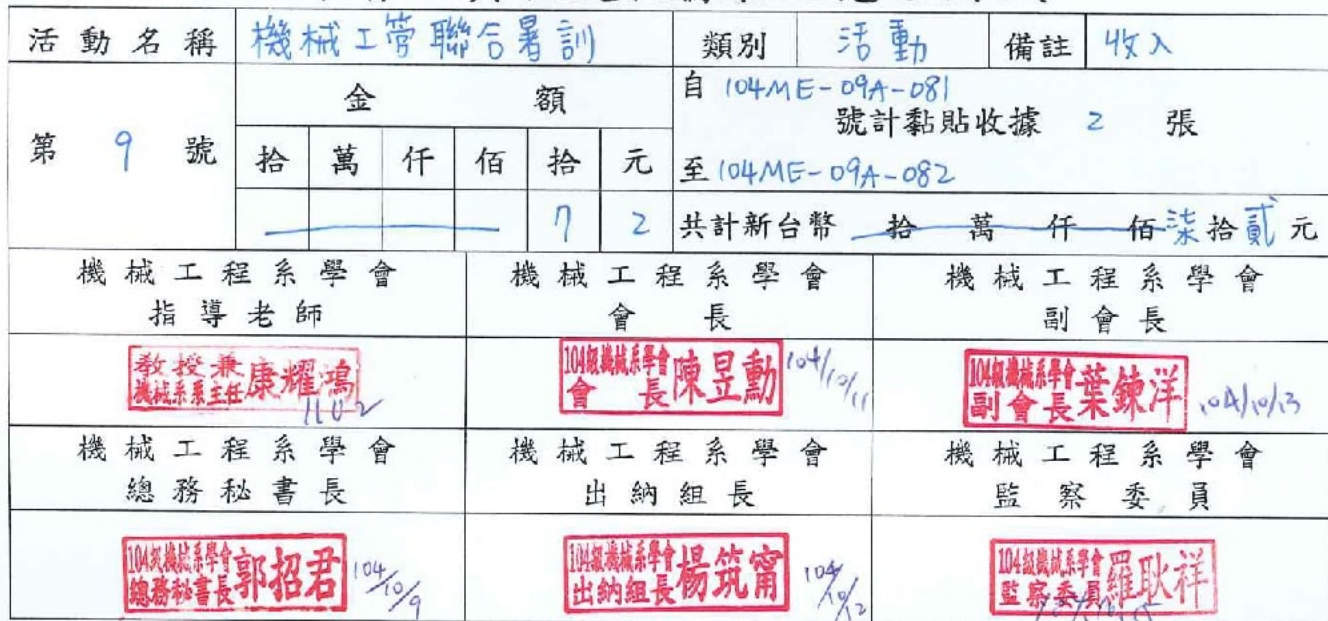 活動名稱 機械工管聯合暑訓 類別 活動 備註 收入
第 9 號
金額
拾 萬 仟 佰 拾 元
7 2
自 104ME-09A-081
號計黏貼收據 2 張
至 104ME-09A-082
共計新台幣 拾 萬 仟 佰 柒 拾 貳 元
機械工程系學會 機械工程系學會 機械工程系學會
指導老師 會長 副會長
教授兼
機械系系主任 康耀鴻
1102
104級機械系學會
會長 陳昱勳 104/10/11
104級機械系學會
副會長 葉鍊洋 104/10/13
機械工程系學會 機械工程系學會 機械工程系學會
總務秘書長 出納組長 監察委員
104級機械系學會
總務秘書長 郭招君 104/10/9
104級機械系學會
出納組長 楊筑甯 104/10/12
104級機械系學會
監察委員 羅耿祥